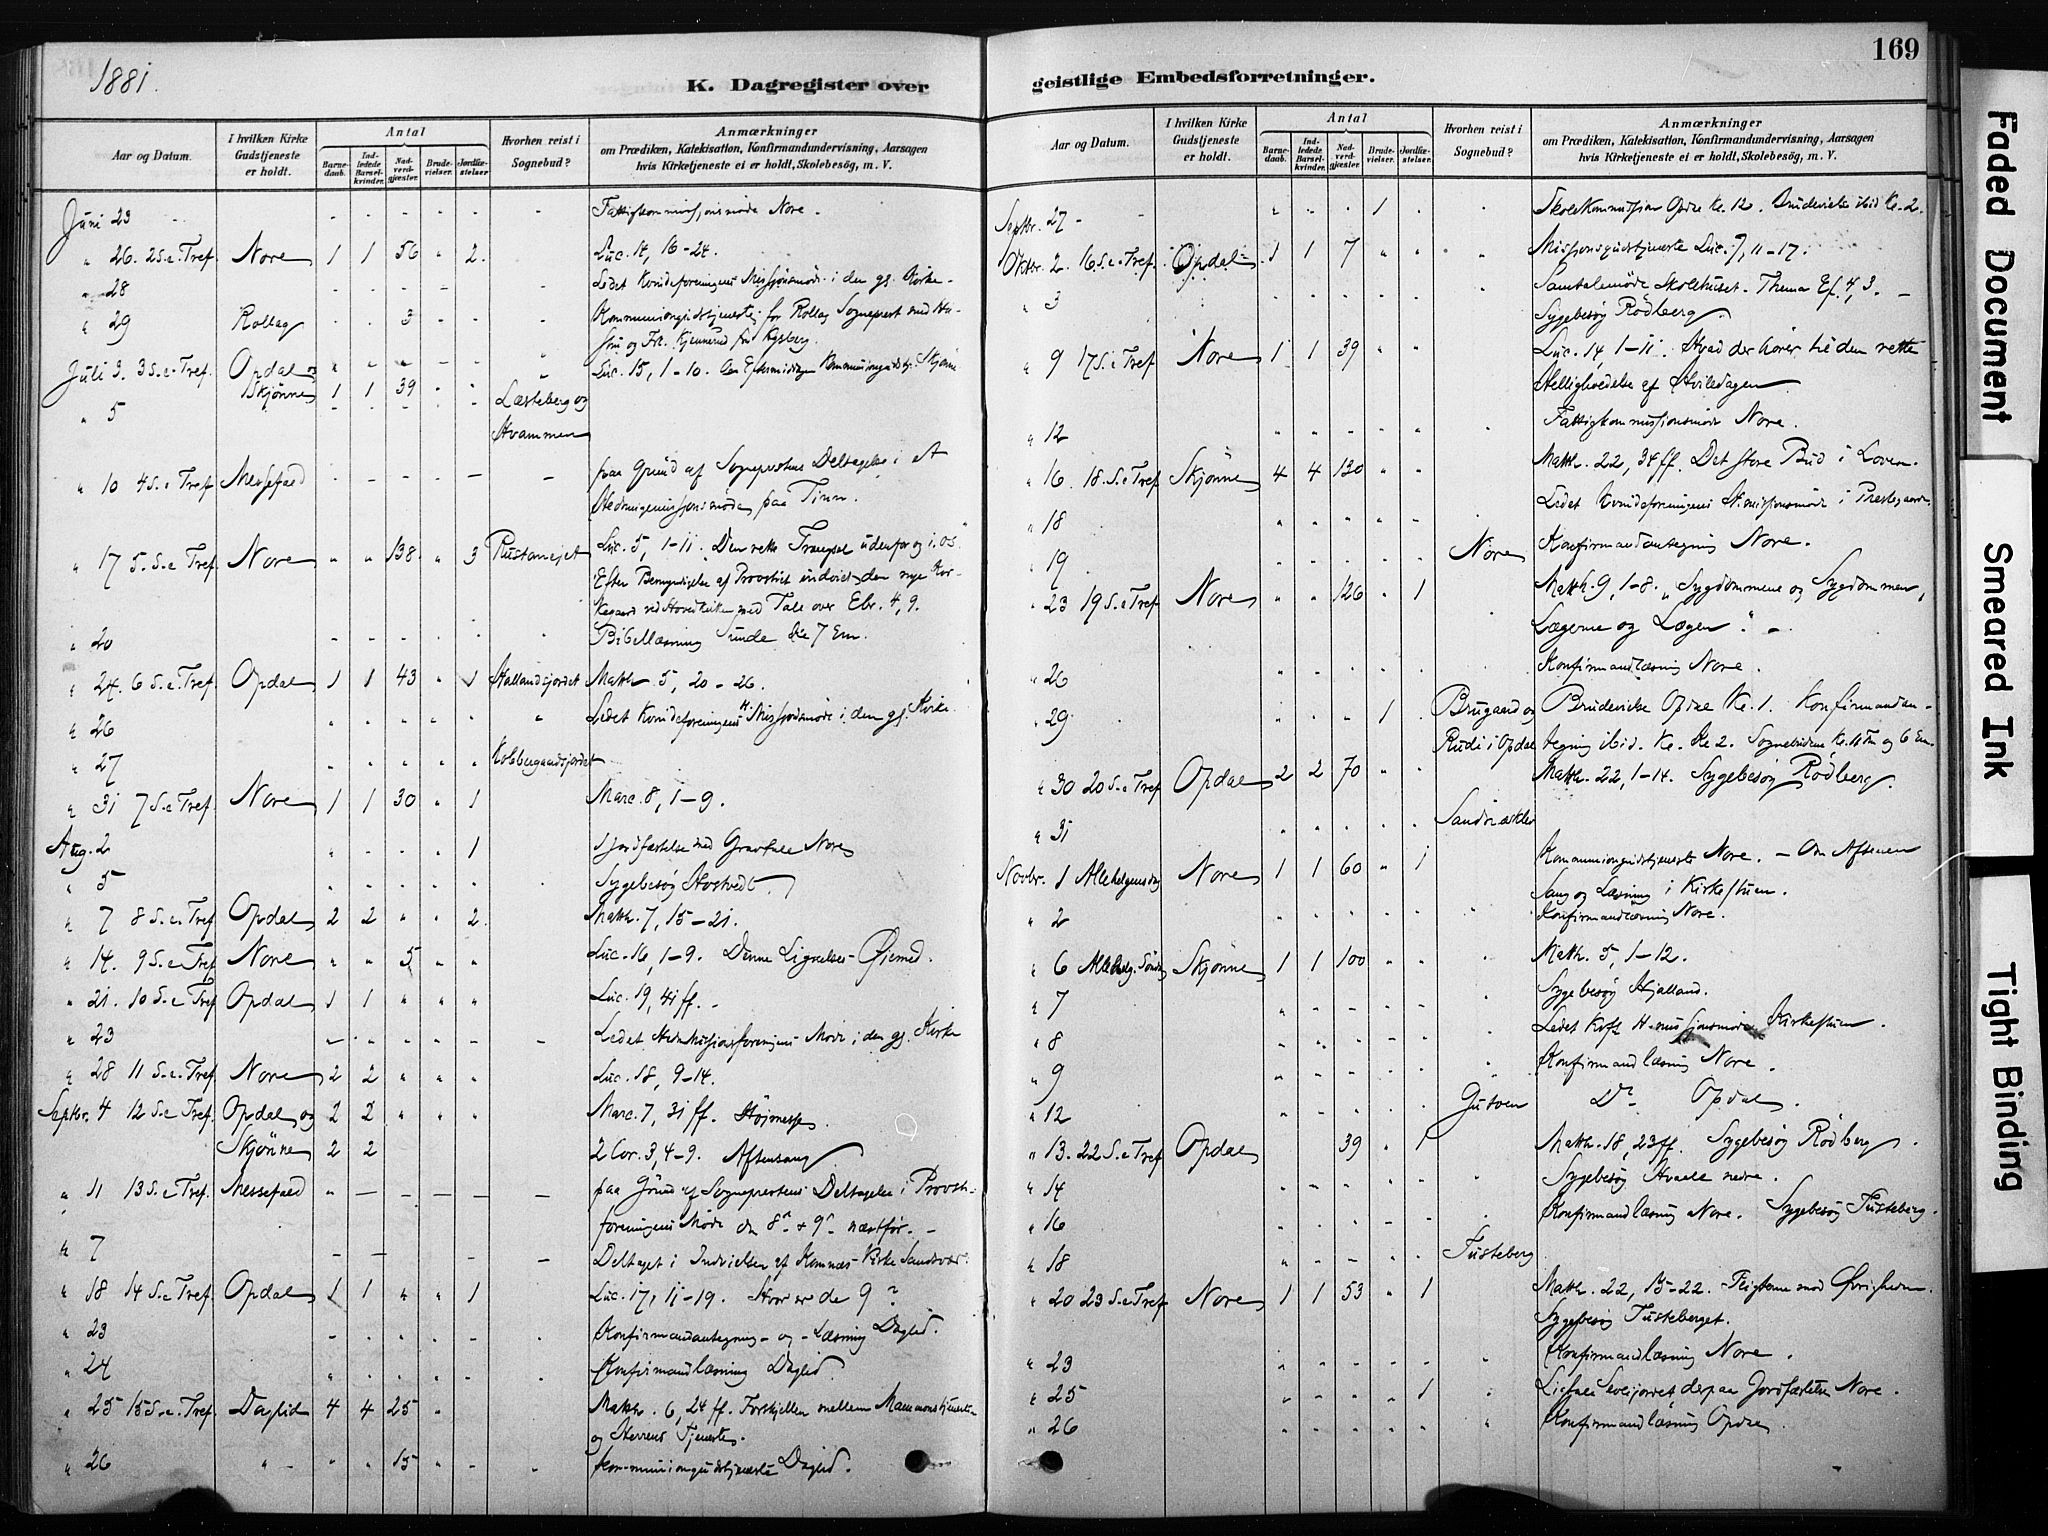 169
1881.
K. Dagregister over
geistlige Embedsforretninger.
Aar og Datum.
I hvilken Kirke Gudstjeneste er holdt.
Antal
Barnedaab.
Indledede Barselkvinder.
Nadverdgjæster.
Brudevielser.
Jordfæstelser
Hvorhen reist i Sognebud?
Anmærkninger
om Prædiken, Katekisation, Konfirmandundervisning, Aarsagen
hvis Kirketjeneste ei er holdt, Skolebesög, m. V.
Juni 23 Fattigkommissionsmøde Nore.
" 26. 2 S. e. Tref. Nore 1 1 56 " 2. Luc. 14, 16-24.
" 28 Ledet Kvindeforeningens Missionsmøde i den gl. Kirke
" 29 Rollag 3 Kommuniongudstjeneste for Rollag Sogneprest med
Juli 3. 3 S. e. Tref. Opdal og Luc. 15, 1-10. Om Eftermiddagen Kommuniongudstj. Skjønne
Skjønne 1 1 39
" 5 Læsteberg og
Hvammen
" 10 4 S. e Tref Messefald paa Grund af Sogneprestens Deltagelse i et
Hedningemissionsmøde paa Tinn.
" 17 5. S. e Tref Nore " " 138 " 3 Luc. 5, 1-11. Den rette Trængsel udenfor og i os
Efter Bemyndigelse af Provstiet indviet den nye Kir-
kegaard ved Hovedkirken med Tale over Ebr. 4, 9.
" 20 Bibellæsning Kl 7 Em.
" 24. 6 S. e. Tref. Opdal 1 1 43 " 1 Hallandsjordet Matth. 5, 20-26.
" 26 Ledet Kvindeforeningens H. Missionsmøde i den gl. Kirke
" 27 Kobbergaardsjordet
" 31 7 S. e Tref. Nore 1 1 30 " 1 Marc. 8, 1-9.
Aug. 2 1 Jordfæstelse med Gravtale Nore
" 5 Sygebesøg
" 7 8 S. e. Tref Opdal 2 2 " " 2. Matth. 7, 15-21.
" 14. 9 S. e Tref Nore " " 5 " " Luc. 16, 1-9. Denne Lignelses Øiemed.
" 21. 10 S. e Tref Opdal 1 1 " " " Luc. 19, 41 ff.
" 23 Ledet Missionsforeningens Møde i den gl. Kirke
" 28 11 S. e. Tref. Nore 2 2 " " " Luc. 18, 9-14.
Septbr. 4 12 S. e Tref. Opdal og 2 2 " " " Marc. 7, 31 ff. Høimesse.
Skjønne 2 2 2 Cor. 3, 4-9. Aftensang
" 11 13 S. e Tref. Messefald paa Grund af Sogneprestens Deltagelse i Provsti-
foreningens Møde den 8de & 9de næstfør.
" 7 Deltaget i Indvielsen af Komnes Kirke Sandsvær.
" 18 14 S. e Tref. Opdal 1 1 " " 1 Luc. 17, 11-19. Hvor er de 9?
" 23 Konfirmandantegning- og -Læsning Daglid.
" 24 Konfirmandlæsning Daglid.
" 25 15 S. e. Tref. Daglid 4 4 25 " Matth. 6, 24 ff. Forskjellen mellem Mammonstjeneste
og Herrens Tjeneste.
" 26 " 15 Kommuniongudstjeneste Daglid.
Aar og Datum.
I hvilken Kirke Gudstjeneste er holdt.
Antal
Barnedaab.
Indledede Barselkvinder.
Nadverdgjæster.
Brudevielser.
Jordfæstelser.
Hvorhen reist i Sognebud?
Anmærkninger
om Prædiken, Katekisation, Konfirmandundervisning, Aarsagen
hvis Kirketjeneste ei er holdt, Skolebesög, m. V.
Septbr. 27 1 Skolekommission Opdal Kl. 12. Brudevielse ibid Kl. 2.
Oktbr. 2. 16 S. e. Tref. Opdal 1 1 7 Missionsgudstjeneste Luc. 7, 11-17.
" 3 Samtalemøde Skolehuset. Thema Ef. 4, 3.
Sygebesøg Rødberg
" 9 17 S. e Tref Nore 1 1 39 Luc. 14, 1-11. Hvad der hører til den rette
Helligholdelse af Hviledagen
" 12 Fattigkommissionsmøde Nore.
" 16 18. S. e Tref Skjønne 4 4 130 Matth. 22, 34 ff. Det store Bud i Loven.
" 18 Ledet Kvindeforeningens H. missionsmøde i Prestegaarden
" 19 Nore Konfirmandantegning Nore.
" 23 19 S. e Tref. Nore " " 126 " 1 Matth. 9, 1-8. "Sygdommene og Sygdommen,
Lægerne og Lægen".
" 26 Konfirmandlæsning Nore.
" 29 1 Brugaard og Brudevielse Opdal Kl. 1. Konfirmandan-
Rudi i Opdal tegning ibid. Kl. 2.
" 30 20 S. e Tref. Opdal 2 2 70 Matth. 22, 1-14. Sygebesøg Rødberg.
" 31
Novbr. 1 Allehelgensdag Nore 1 1 60 " 1 Kommuniongudstjeneste Nore. - Om Aftenen
Sang og Læsning i Kirkestuen.
" 2 Konfirmandlæsning Nore.
" 6 Allehelg. Søndag Skjønne 1 1 100 Matth. 5, 1-12.
" 7 Sygebesøg Hjalland.
" 8 Ledet H. missionsmøde Kirkestuen.
" 9 Konfirmandlæsning Nore.
" 12 Do Opdal.
" 13. 22 S. e Tref. Opdal 39 " 1 Matth. 18, 23 ff. Sygebesøg Rødberg.
" 14 Sygebesøg Hvaale nedre.
" 16 Konfirmandlæsning Nore. Sygebesøg Tusteberg.
" 18 Tusteberg
" 20 23 S. e Tref Nore 1 1 53 " 1 Matth. 22, 15-22. Pligterne mod Øvrigheden.
Sygebesøg Tusteberget.
" 23 Konfirmandlæsning Nore.
" 25 1 derpaa Jordfæstelse Nore.
" 26 Konfirmandlæsning Opdal
Faded Document
Smeared Ink
Tight Binding